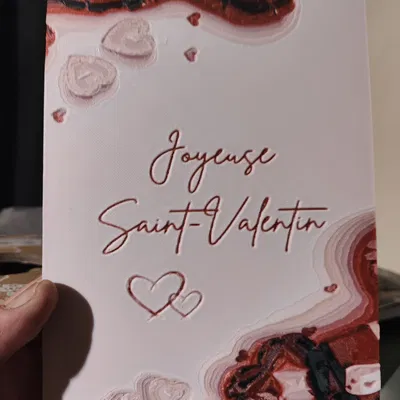 Joyeuse
Saint-Valentin